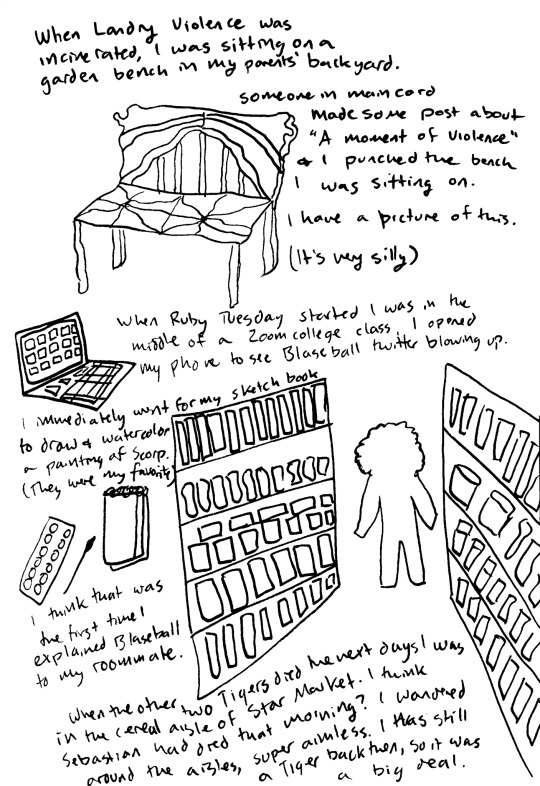 When Landry Violence was
incinerated, I was sitting on a
garden bench in my parents' backyard.
someone in maincord
made some post about
"A moment of Violence"
& I punched the bench
I was sitting on.
I have a picture of this.
(It's very silly)
When Ruby Tuesday started I was in the
middle of a Zoom college class. I opened
my phone to see Blaseball twitter blowing up.
I immediately went for my sketch book
to draw & watercolor
a painting of Scorp.
(They were my favorite)
I think that was
the first time I
explained Blaseball
to my roommate.
When the other two Tigers died the next days I was
in the cereal aisle of Star Market. I think
Sebastian had died that morning? I wandered
around the aisles, super aimless. I was still
a Tiger back then, so it was
a big deal.